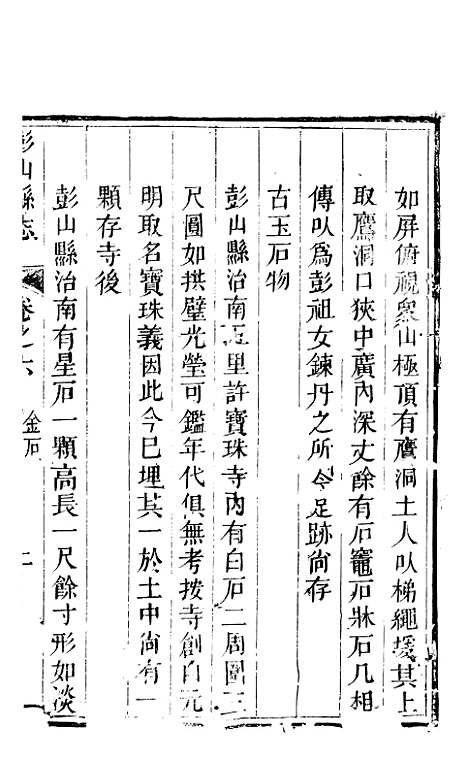 如屏俯視衆山極頂有鷹洞土人以梯繩援其上
取鷹洞口狹中廣內深丈餘有石竈石牀石几相
傳以爲彭祖女鍊丹之所今足跡尙存
古玉石物
彭山縣治南五里許寶珠寺內有白石二周圍三
尺圓如拱璧光瑩可鑑年代俱無考按寺創自元
明取名寶珠義因此今已埋其一於土中尙有一
顆存寺後
彭山縣治南有星石一顆高長一尺餘寸形如淡
彭山縣志 卷之六 金石 二